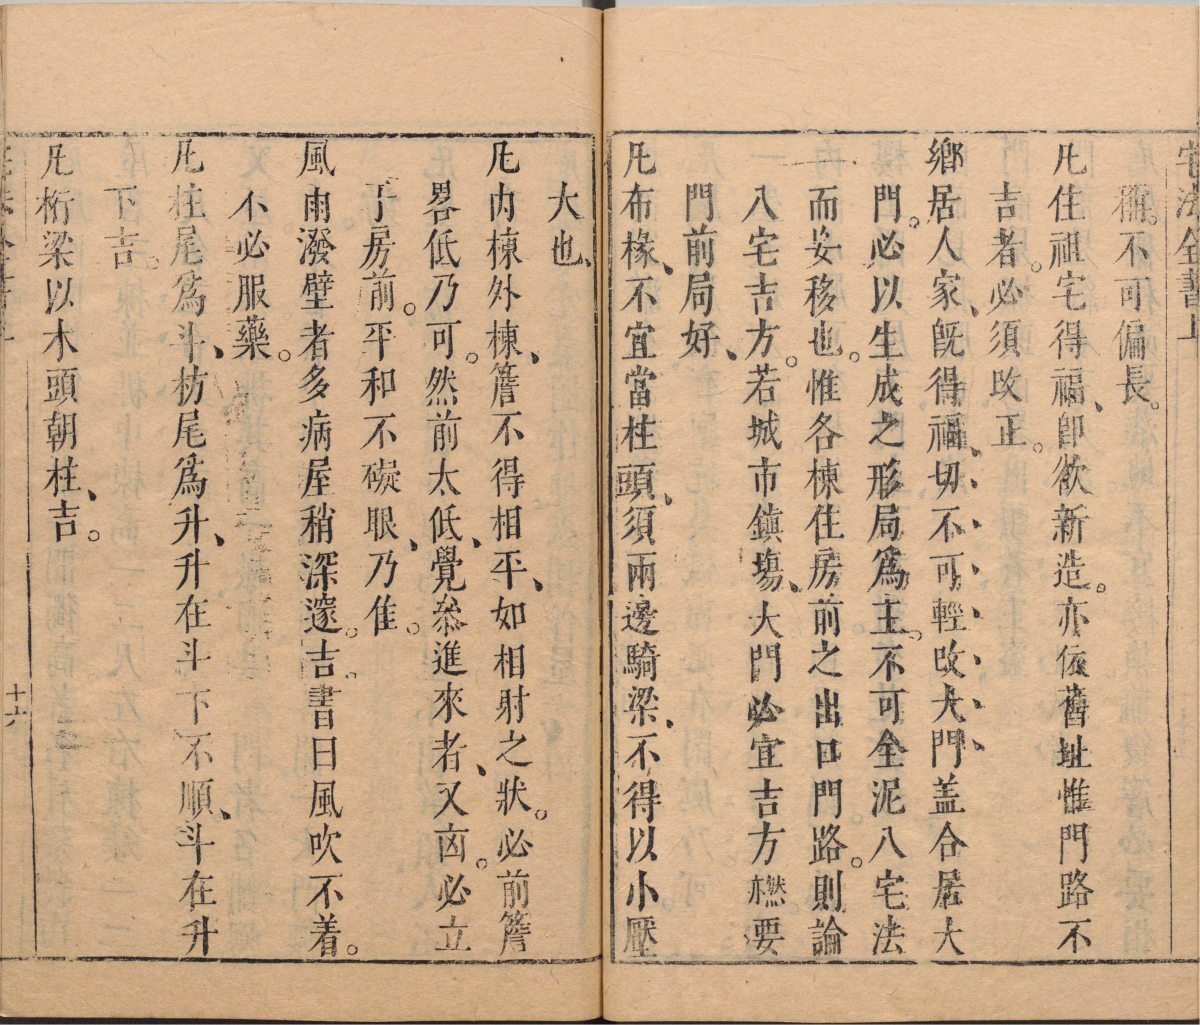 宅法全書上
稱。不可偏長。
凡住祖宅得福、卽欲新造。亦依舊址惟門路不
吉者。必須改正。
鄉居人家、旣得福、切不可輕改大門、蓋合居大
門。必以生成之形局爲主。不可全泥八宅法
而妄移也。惟各棟住房前之出口門路。則論
八宅吉方。若城市鎮塲、大門必宜吉方橪要
門前局好、
凡布椽、不宜當柱頭、須兩邊騎梁、不得以小壓
大也、
凡內棟外棟、簷不得相平、如相射之狀。必前簷
畧低乃可。然前太低、覺叅進來者、又囱。必立
于房前。平和不礙眼、乃隹。
風雨潑壁者多病屋稍深邃。吉。書曰風吹不着。
不必服藥。
凡柱尾爲斗、枋尾爲升、升在斗下不順、斗在升
下吉。
凡桁梁以木頭朝柱、吉。
十六